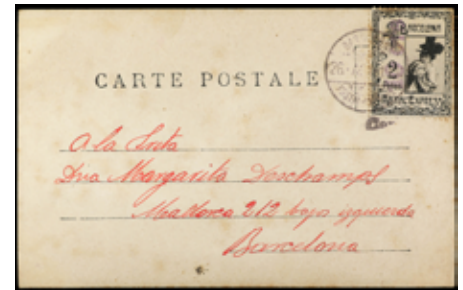 CARTE POSTALE
BARCELONA
2
A la Srta
Dña Margarita Deschamps
Mallorca 212 bajo izquierda
Barcelona